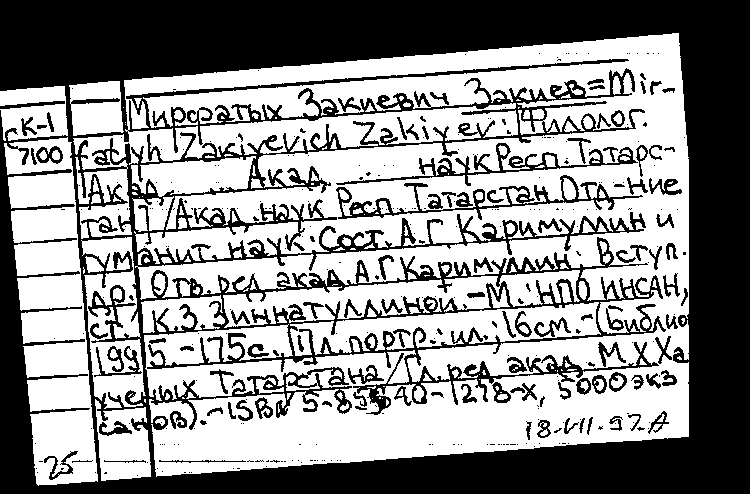 Мирфатых Закиевич Закиев=Mir-
СК-1
7100
fatyh Zakiyevich Zakiyev: [Филолог.
Акад. ... Акад. ... наук Респ. Татарс-
тан] / Акад. наук Респ. Татарстан. Отд-ние
гуманит. наук; Сост. А.Г. Каримуллин и
др.; Отв. ред. акад. А.Г. Каримуллин; Вступ.
ст. К.З. Зиннатуллиной. - М.: НПО ИНСАН,
1995. - 175с., [1]л. портр.: ил.; 16см. - (Библио
ученых Татарстана / Гл. ред. акад. М.Х.Ха
санов). - ISBN 1278-X, 5000 экз
18-VII-97.А
25